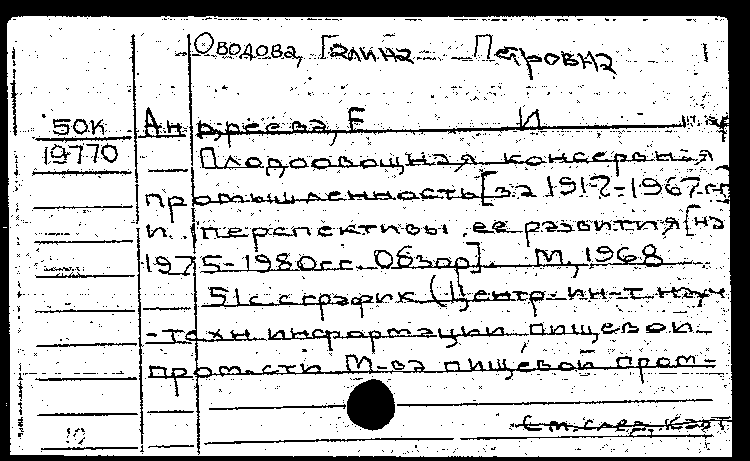 Оводова, Галина Петровна 1
50К Андреева, Е И
19770 Плодоовощная консервная
промышленность [за 1917-1967 гг]
и перспективы ее развития [на
1975-1980 гг. Обзор]. М., 1968
51 с с график (Центр. ин-т науч
-техн информации пищевой
пром-сти М-ва пищевой пром-
См. след. карт
10